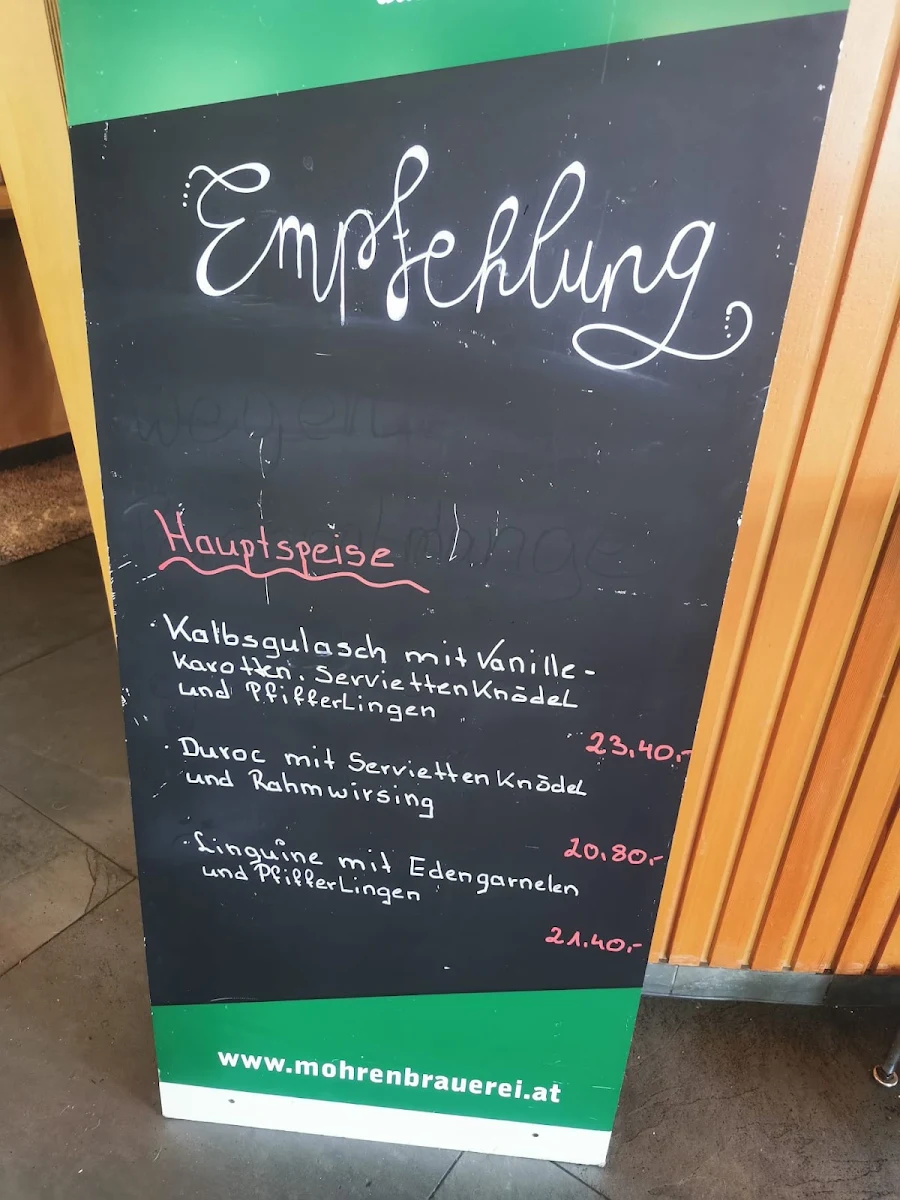 Empfehlung
wegen
Hauptspeise
· Kalbsgulasch mit Vanille-
Karotten. Serviettenknödel
und Pfifferlingen
23.40.-
· Duroc mit Serviettenknödel
und Rahmwirsing
20.80.-
· Linguine mit Edengarnelen
und Pfifferlingen
21.40.-
www.mohrenbrauerei.at